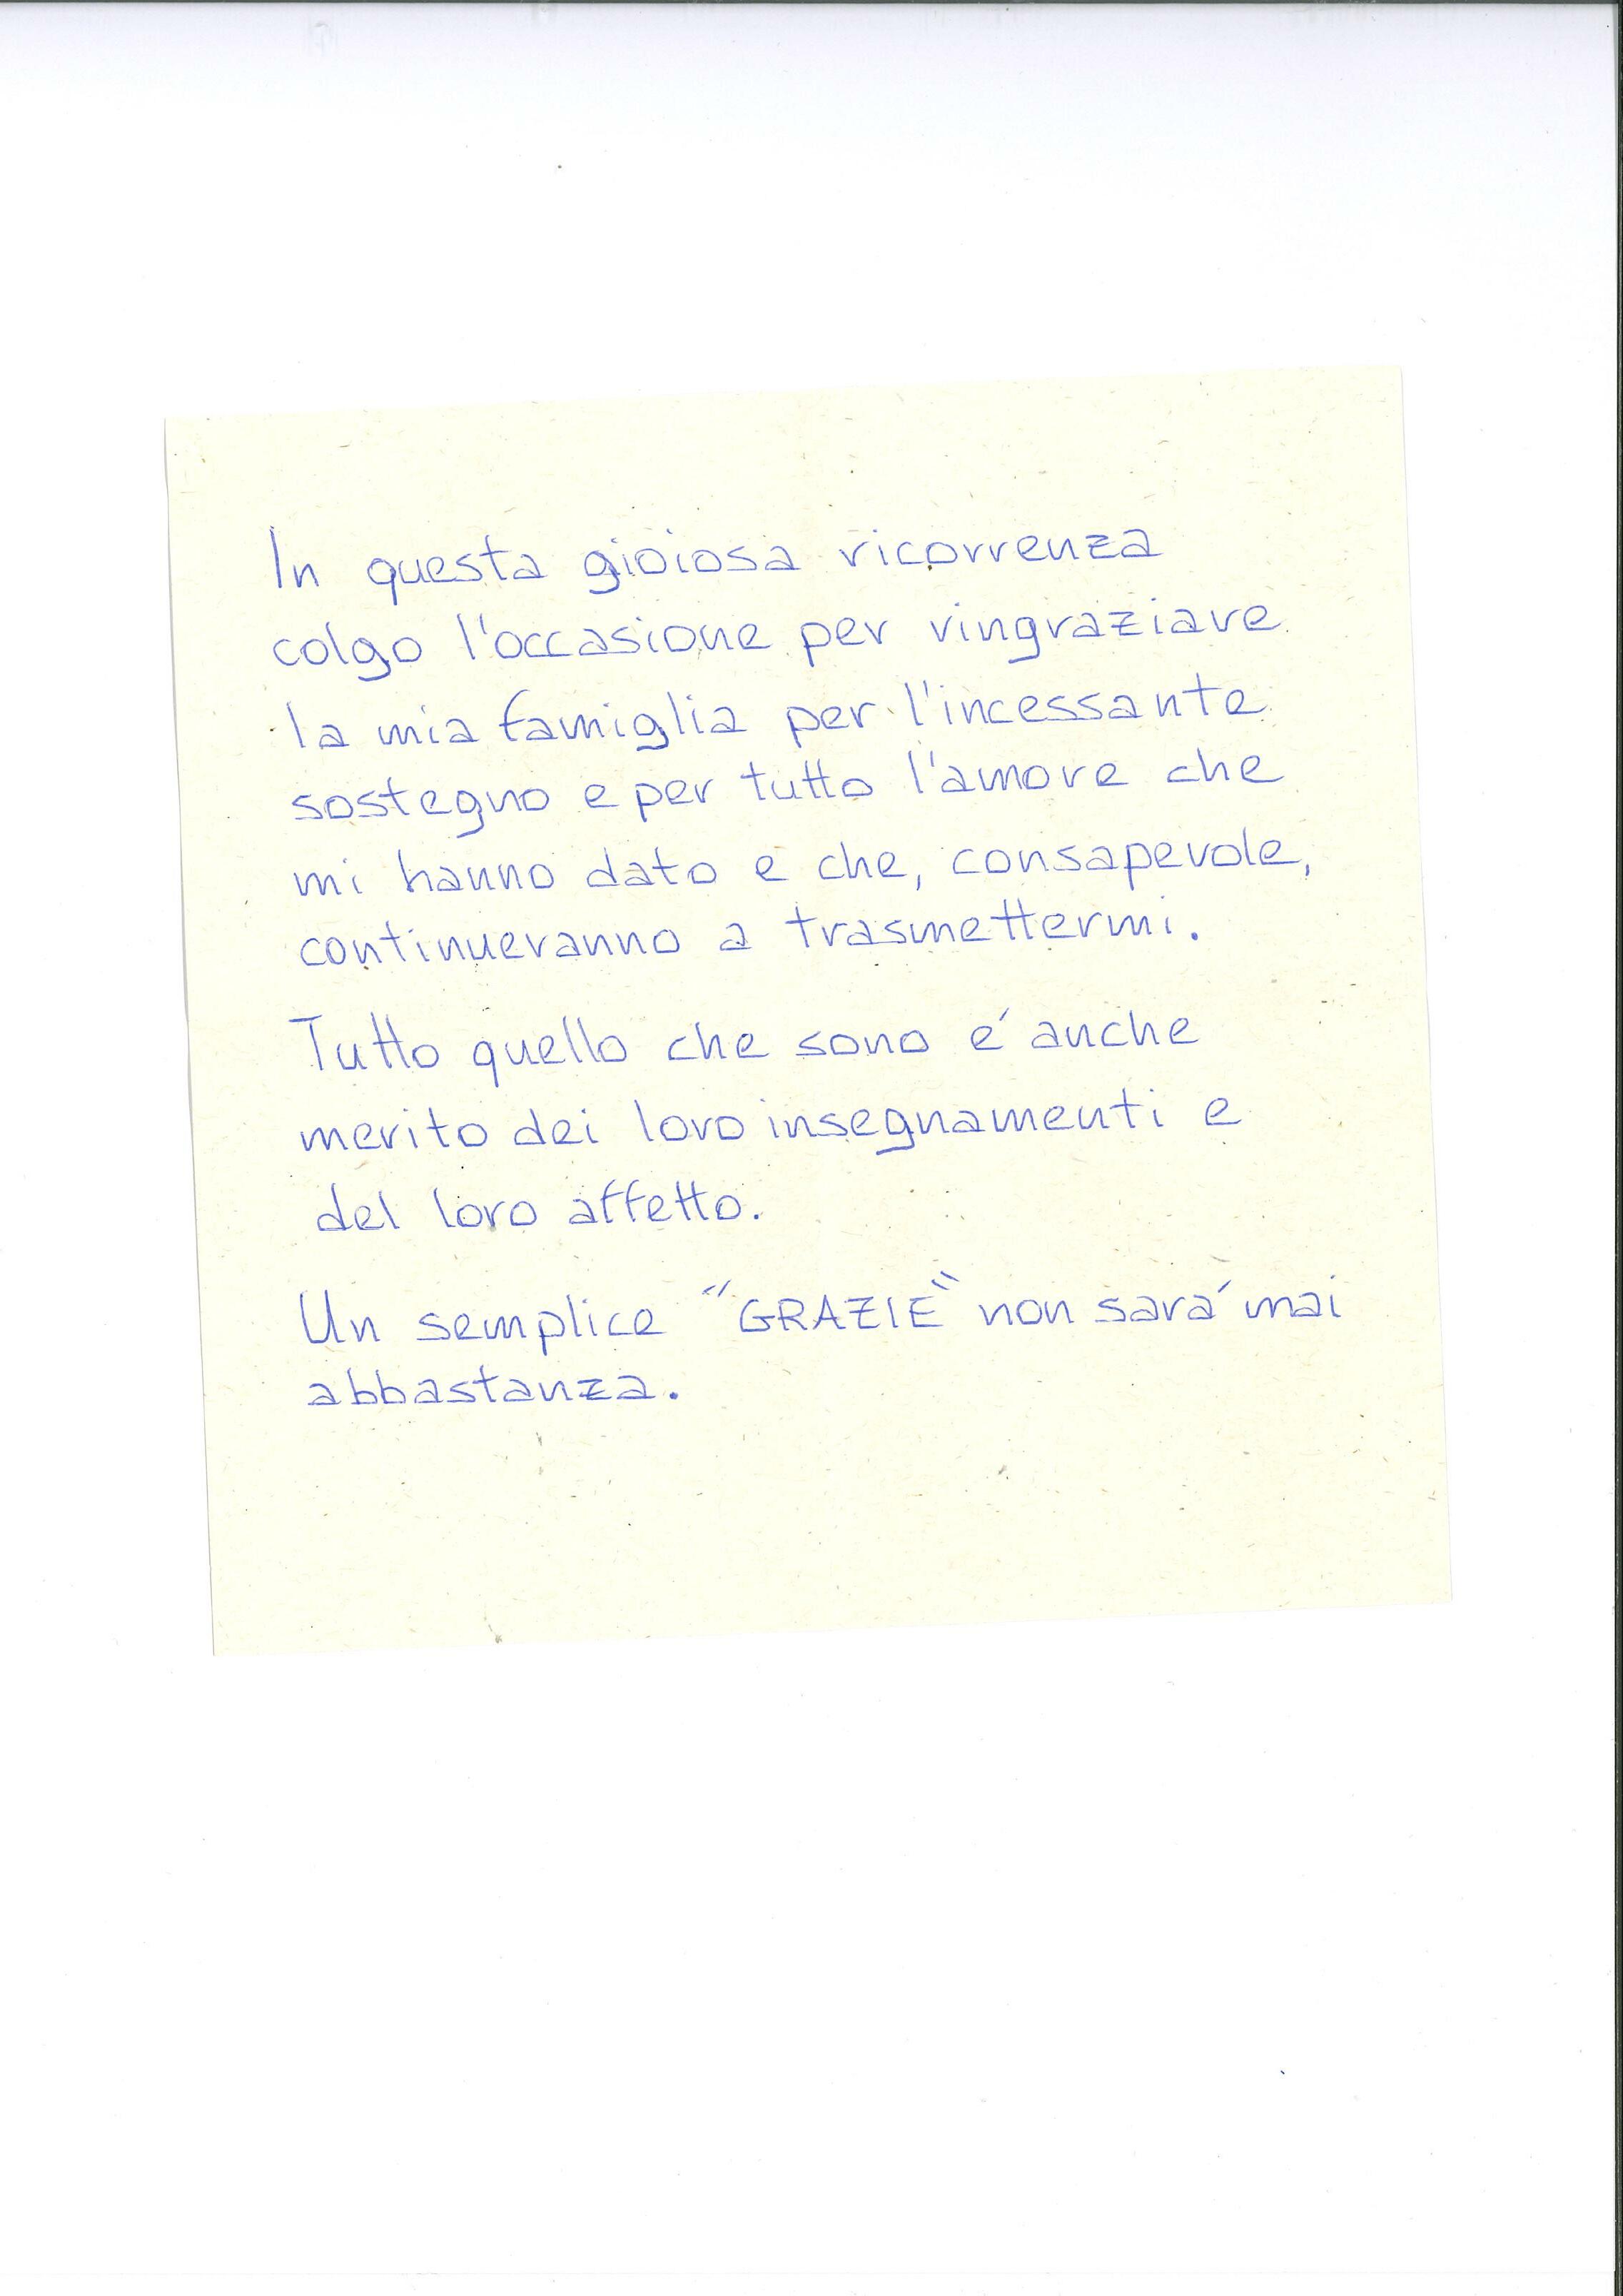 In questa gioiosa ricorrenza
colgo l'occasione per ringraziare
la mia famiglia per l'incessante
sostegno e per tutto l'amore che
mi hanno dato e che, consapevole,
continueranno a trasmettermi.
Tutto quello che sono é anche
merito dei loro insegnamenti e
del loro affetto.
Un semplice "GRAZIE" non sará mai
abbastanza.